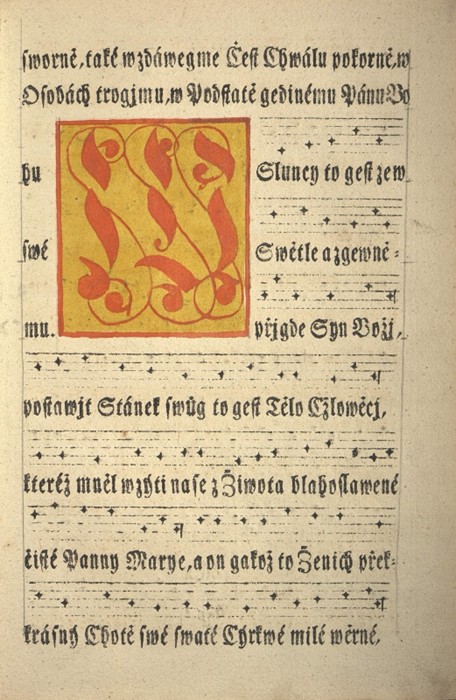 sworně, také wzdáwegme Čest Chwálu pokorně, w
Osobách trogjmu, w Podstatě gedinému Pánu Bo
hu
Sluncy to gest zew
swé
Swětle a zgewně-
mu.
W
přigde Syn Božj,
postawjt Stánek swůg to gest Tělo Cžlowěcj,
kteréž mněl wzýti na se z Žiwota blahoslawené
čisté Panny Marye, a on gakož to Ženich přek-
krásný Chotě swé swaté Cýrkwé milé wěrné,